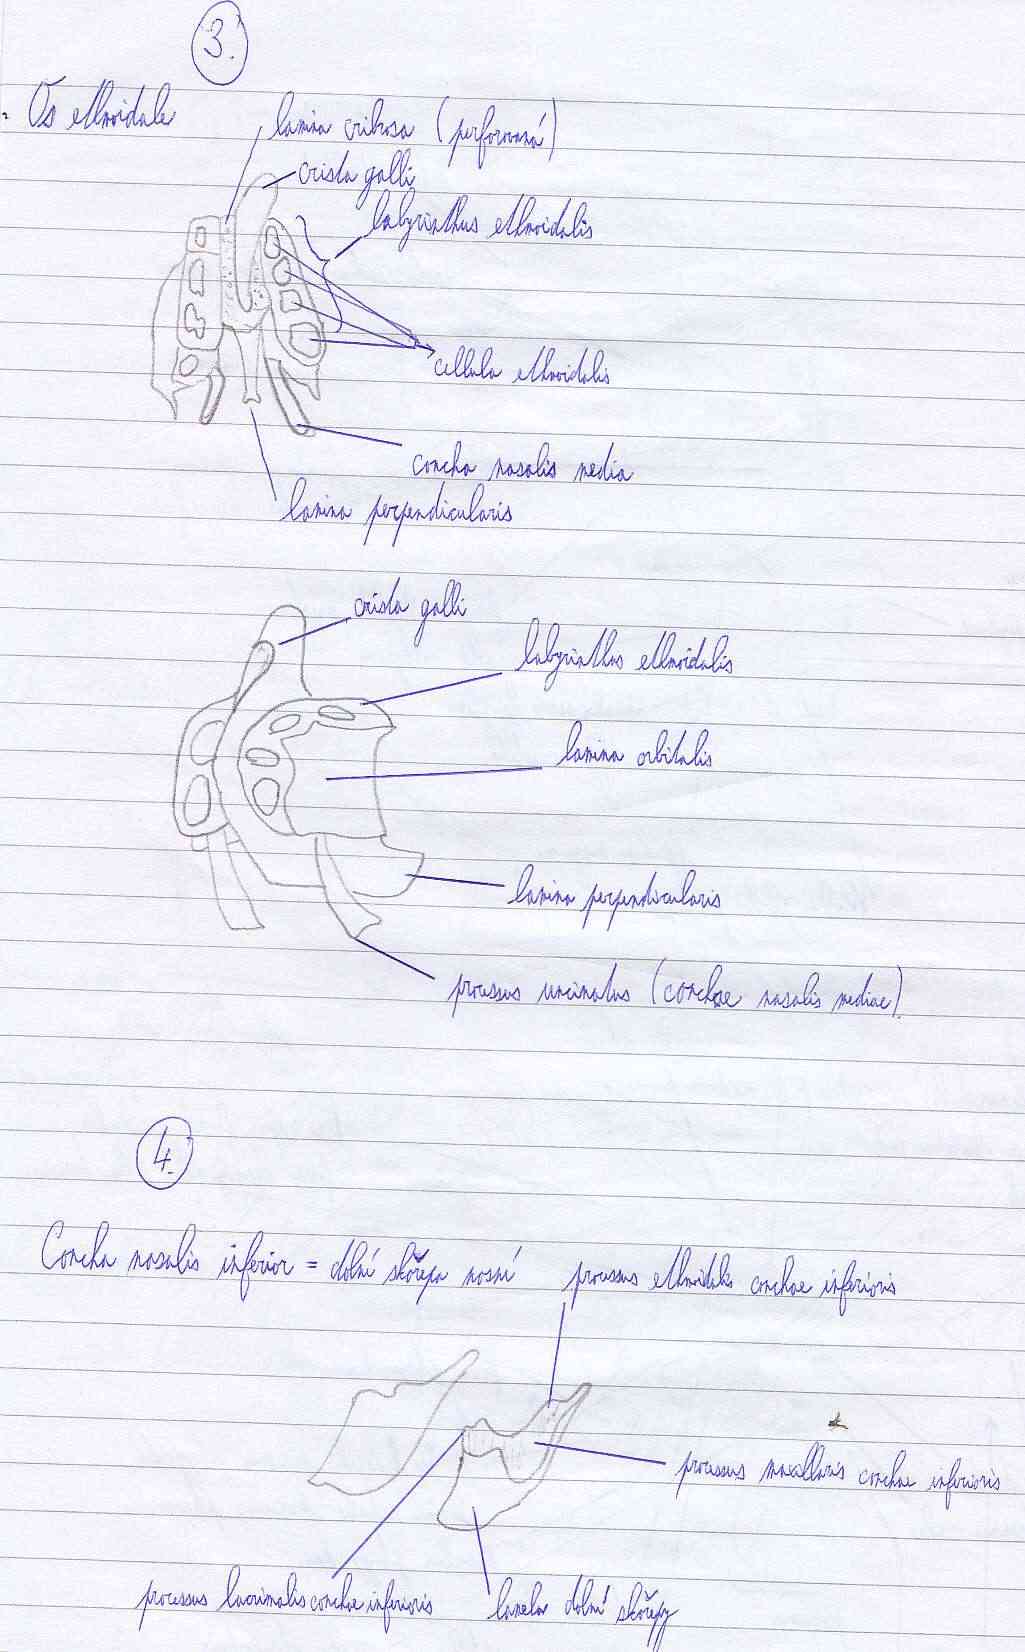 3.
Os ethmoidale
lamina cribrosa (perforovaná)
crista galli
labyrinthus ethmoidalis
cellula ethmoidalis
concha nasalis media
lamina perpendicularis
crista galli
labyrinthus ethmoidalis
lamina orbitalis
lamina perpendicularis
processus uncinatus (conchae nasalis mediae)
4.
Concha nasalis inferior = dolní skořepa nosní
processus ethmoidalis conchae inferioris
processus maxillaris conchae inferioris
processus lacrimalis conchae inferioris
lamela dolní skořepy